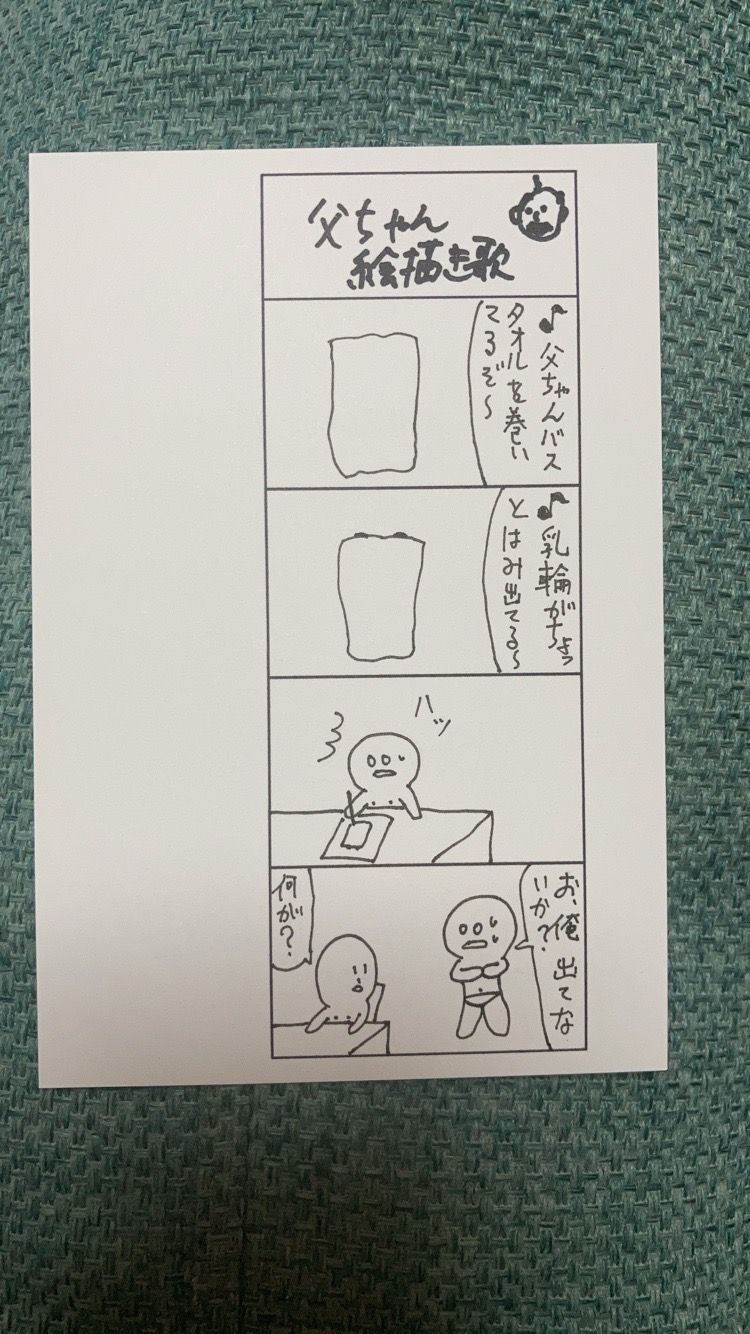 父ちゃん
絵描き歌
♪父ちゃんバス
タオルを巻い
てるぞ〜
♪乳輪がちょっ
とはみ出てる〜
ハッ
お、俺出てな
いか?
何が?